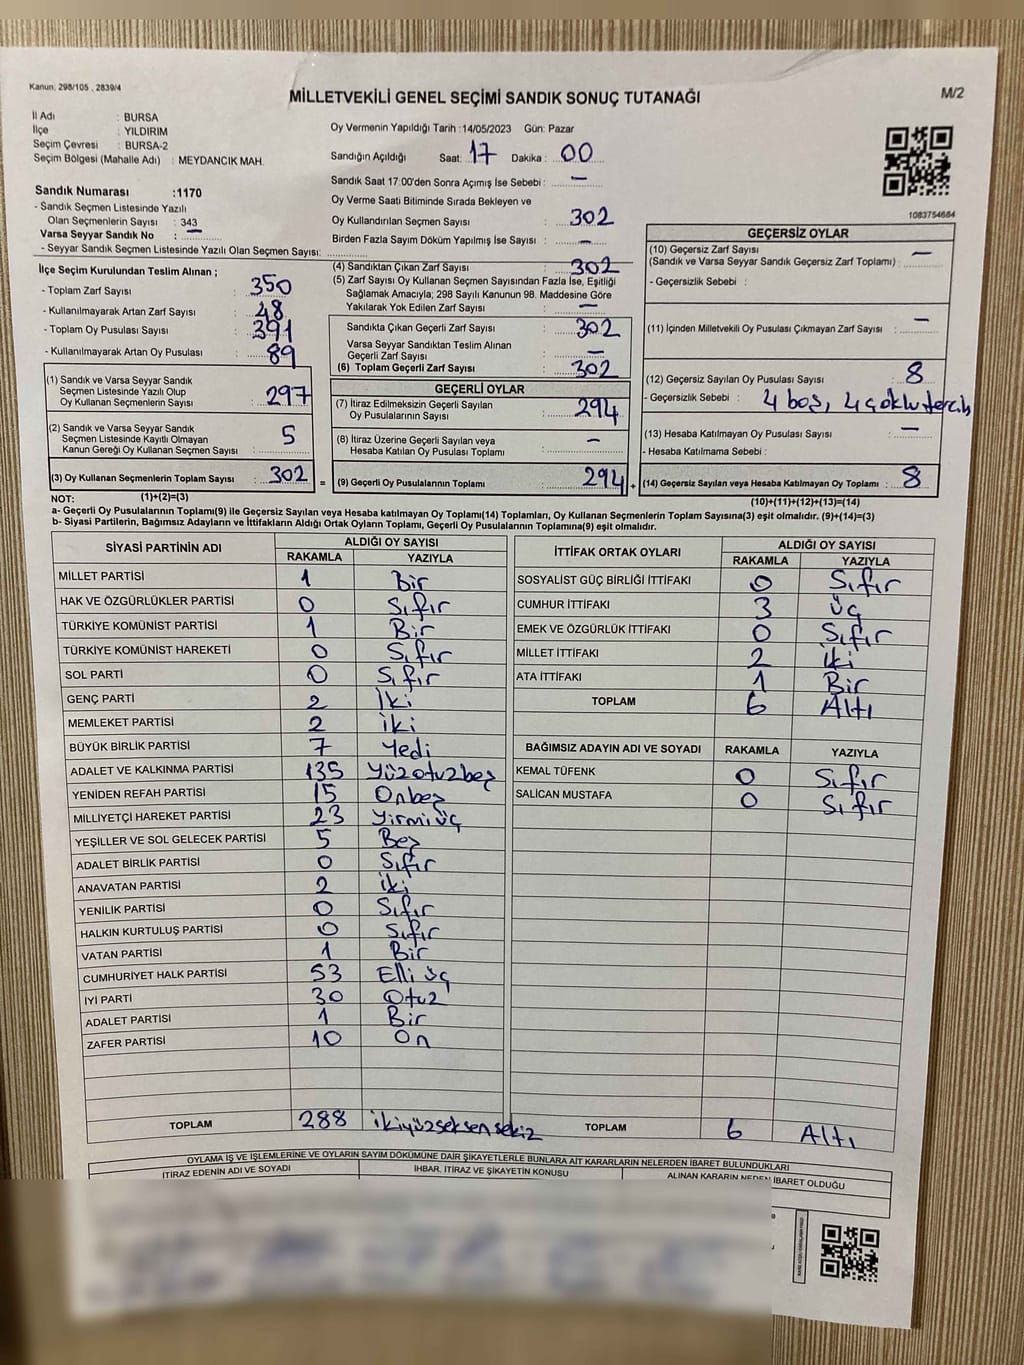 Kanun: 298/105 , 2839/4
MİLLETVEKİLİ GENEL SEÇİMİ SANDIK SONUÇ TUTANAĞI
M/2
İl Adı : BURSA
İlçe : YILDIRIM
Seçim Çevresi : BURSA-2
Seçim Bölgesi (Mahalle Adı) : MEYDANCIK MAH.
Sandık Numarası :1170
- Sandık Seçmen Listesinde Yazılı
Olan Seçmenlerin Sayısı : 343
Varsa Seyyar Sandık No : —
- Seyyar Sandık Seçmen Listesinde Yazılı Olan Seçmen Sayısı:
Oy Vermenin Yapıldığı Tarih :14/05/2023 Gün: Pazar
Sandığın Açıldığı Saat: 17 Dakika : 00
Sandık Saat 17:00'den Sonra Açımış İse Sebebi : —
Oy Verme Saati Bitiminde Sırada Bekleyen ve
Oy Kullandırılan Seçmen Sayısı : 302
Birden Fazla Sayım Döküm Yapılmış İse Sayısı : —
1083754684
İlçe Seçim Kurulundan Teslim Alınan ;
- Toplam Zarf Sayısı : 350
- Kullanılmayarak Artan Zarf Sayısı : 48
- Toplam Oy Pusulası Sayısı : 391
- Kullanılmayarak Artan Oy Pusulası : 89
(1) Sandık ve Varsa Seyyar Sandık
Seçmen Listesinde Yazılı Olup
Oy Kullanan Seçmenlerin Sayısı : 297
(2) Sandık ve Varsa Seyyar Sandık
Seçmen Listesinde Kayıtlı Olmayan
Kanun Gereği Oy Kullanan Seçmen Sayısı : 5
(3) Oy Kullanan Seçmenlerin Toplam Sayısı : 302 =
(4) Sandıktan Çıkan Zarf Sayısı : 302
(5) Zarf Sayısı Oy Kullanan Seçmen Sayısından Fazla İse, Eşitliği
Sağlamak Amacıyla; 298 Sayılı Kanunun 98. Maddesine Göre
Yakılarak Yok Edilen Zarf Sayısı : —
Sandıkta Çıkan Geçerli Zarf Sayısı : 302
Varsa Seyyar Sandıktan Teslim Alınan
Geçerli Zarf Sayısı : —
(6) Toplam Geçerli Zarf Sayısı : 302
GEÇERLİ OYLAR
(7) İtiraz Edilmeksizin Geçerli Sayılan
Oy Pusulalarının Sayısı : 294
(8) İtiraz Üzerine Geçerli Sayılan veya
Hesaba Katılan Oy Pusulası Toplamı : —
(9) Geçerli Oy Pusulalarının Toplamı : 294 +
GEÇERSİZ OYLAR
(10) Geçersiz Zarf Sayısı
(Sandık ve Varsa Seyyar Sandık Geçersiz Zarf Toplamı) : —
- Geçersizlik Sebebi :
(11) İçinden Milletvekili Oy Pusulası Çıkmayan Zarf Sayısı : —
(12) Geçersiz Sayılan Oy Pusulası Sayısı : 8
- Geçersizlik Sebebi : 4 boş, 4 çoklu tercih
(13) Hesaba Katılmayan Oy Pusulası Sayısı : —
- Hesaba Katılmama Sebebi :
(14) Geçersiz Sayılan veya Hesaba Katılmayan Oy Toplamı : 8
NOT: (1)+(2)=(3)
(10)+(11)+(12)+(13)=(14)
a- Geçerli Oy Pusulalarının Toplamı(9) ile Geçersiz Sayılan veya Hesaba Katılmayan Oy Toplamı(14) Toplamları, Oy Kullanan Seçmenlerin Toplam Sayısına(3) eşit olmalıdır. (9)+(14)=(3)
b- Siyasi Partilerin, Bağımsız Adayların ve İttifakların Aldığı Ortak Oyların Toplamı, Geçerli Oy Pusulalarının Toplamına(9) eşit olmalıdır.
SİYASİ PARTİNİN ADI ALDIĞI OY SAYISI
RAKAMLA YAZIYLA
MİLLET PARTİSİ 1 Bir
HAK VE ÖZGÜRLÜKLER PARTİSİ 0 Sıfır
TÜRKİYE KOMÜNİST PARTİSİ 1 Bir
TÜRKİYE KOMÜNİST HAREKETİ 0 Sıfır
SOL PARTİ 0 Sıfır
GENÇ PARTİ 2 İki
MEMLEKET PARTİSİ 2 iki
BÜYÜK BİRLİK PARTİSİ 7 Yedi
ADALET VE KALKINMA PARTİSİ 135 Yüzotuzbeş
YENİDEN REFAH PARTİSİ 15 Onbeş
MİLLİYETÇİ HAREKET PARTİSİ 23 Yirmiüç
YEŞİLLER VE SOL GELECEK PARTİSİ 5 Beş
ADALET BİRLİK PARTİSİ 0 Sıfır
ANAVATAN PARTİSİ 2 iki
YENİLİK PARTİSİ 0 Sıfır
HALKIN KURTULUŞ PARTİSİ 0 Sıfır
VATAN PARTİSİ 1 Bir
CUMHURİYET HALK PARTİSİ 53 Elli üç
İYİ PARTİ 30 Otuz
ADALET PARTİSİ 1 Bir
ZAFER PARTİSİ 10 On
TOPLAM 288 ikiyüzseksensekiz
İTTİFAK ORTAK OYLARI ALDIĞI OY SAYISI
RAKAMLA YAZIYLA
SOSYALİST GÜÇ BİRLİĞİ İTTİFAKI 0 Sıfır
CUMHUR İTTİFAKI 3 üç
EMEK VE ÖZGÜRLÜK İTTİFAKI 0 Sıfır
MİLLET İTTİFAKI 2 iki
ATA İTTİFAKI 1 Bir
TOPLAM 6 Altı
BAĞIMSIZ ADAYIN ADI VE SOYADI RAKAMLA YAZIYLA
KEMAL TÜFENK 0 Sıfır
SALİCAN MUSTAFA 0 Sıfır
TOPLAM 6 Altı
OYLAMA İŞ VE İŞLEMLERİNE VE OYLARIN SAYIM DÖKÜMÜNE DAİR ŞİKAYETLERLE BUNLARA AİT KARARLARIN NELERDEN İBARET BULUNDUKLARI
İTİRAZ EDENİN ADI VE SOYADI
İHBAR, İTİRAZ VE ŞİKAYETİN KONUSU
ALINAN KARARIN NEDEN İBARET OLDUĞU